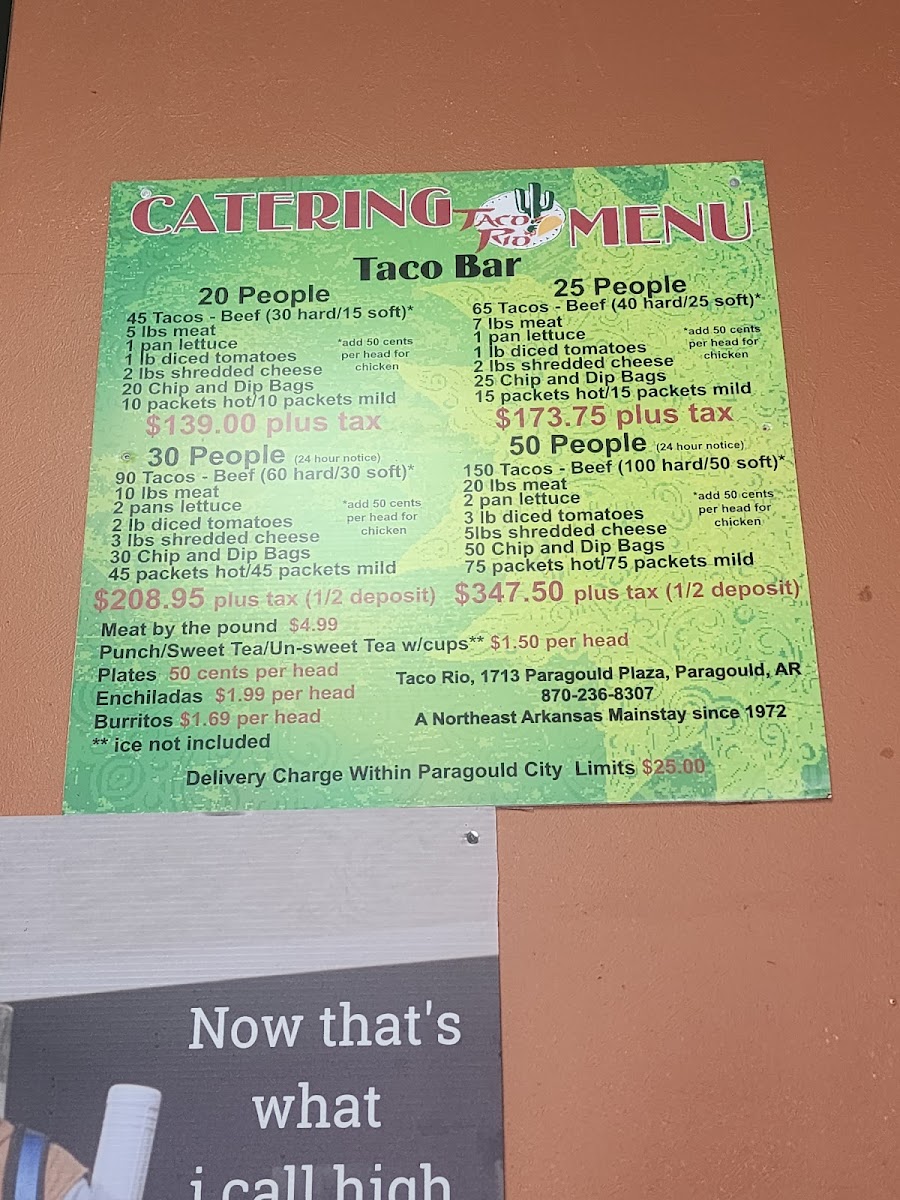 CATERING TACO RIO MENU
Taco Bar
20 People
45 Tacos - Beef (30 hard/15 soft)*
5 lbs meat
1 pan lettuce
1 lb diced tomatoes
2 lbs shredded cheese
20 Chip and Dip Bags
10 packets hot/10 packets mild
*add 50 cents
per head for
chicken
$139.00 plus tax
25 People
65 Tacos - Beef (40 hard/25 soft)*
7 lbs meat
1 pan lettuce
1 lb diced tomatoes
2 lbs shredded cheese
25 Chip and Dip Bags
15 packets hot/15 packets mild
*add 50 cents
per head for
chicken
$173.75 plus tax
30 People (24 hour notice)
90 Tacos - Beef (60 hard/30 soft)*
10 lbs meat
2 pans lettuce
2 lb diced tomatoes
3 lbs shredded cheese
30 Chip and Dip Bags
45 packets hot/45 packets mild
*add 50 cents
per head for
chicken
$208.95 plus tax (1/2 deposit)
50 People (24 hour notice)
150 Tacos - Beef (100 hard/50 soft)*
20 lbs meat
2 pan lettuce
3 lb diced tomatoes
5lbs shredded cheese
50 Chip and Dip Bags
75 packets hot/75 packets mild
*add 50 cents
per head for
chicken
$347.50 plus tax (1/2 deposit)
Meat by the pound $4.99
Punch/Sweet Tea/Un-sweet Tea w/cups** $1.50 per head
Plates 50 cents per head
Enchiladas $1.99 per head
Burritos $1.69 per head
** ice not included
Taco Rio, 1713 Paragould Plaza, Paragould, AR
870-236-8307
A Northeast Arkansas Mainstay since 1972
Delivery Charge Within Paragould City Limits $25.00
Now that's
what
i call high